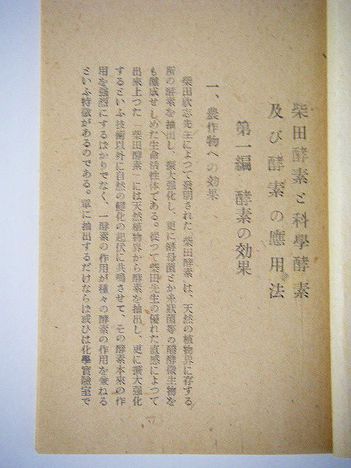 柴田酵素と科學酵素
及び酵素の應用法
第一編 酵素の効果
一、農作物への効果
柴田欣志先生によつて發明された「柴田酵素」は、天然の植物界に存する
所の酵素を抽出し、擴大强化し、更に酵母菌とか糸狀菌等の醱酵微生物を
も釀成せしめた生命活性体である。從つて柴田先生の優れた直感によつて
出來上つた「柴田酵素」には天然植物界から酵素を抽出し、更に擴大强化
するといふ技術以外に自然の變化の起伏に共鳴させて、その酵素本來の作
用を强烈にするばかりでなく、一酵素の作用が種々の酵素の作用を兼ねる
といふ特徵があるのである。單に抽出するだけならば或ひは化學實驗室で